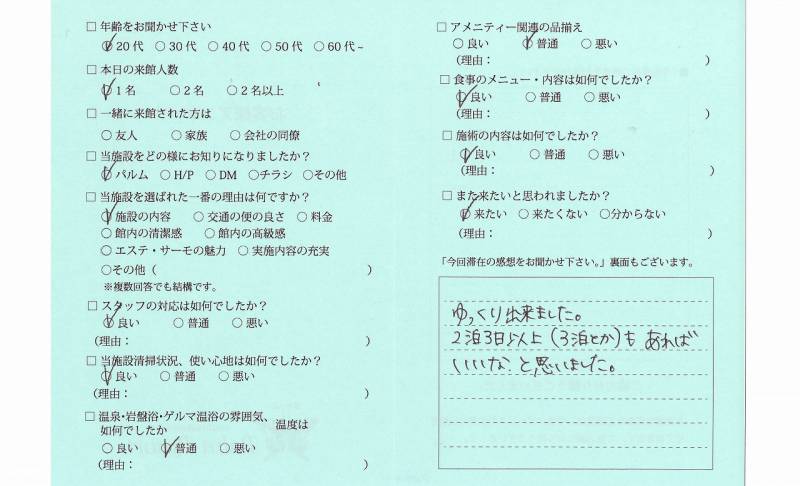 □ 年齢をお聞かせ下さい
○ 20 代 ○ 30 代 ○ 40 代 ○ 50 代 ○ 60 代 ~
□ 本日の来館人数
○ 1 名 ○ 2 名 ○ 2 名以上
□ 一緒に来館された方は
○ 友人 ○ 家族 ○ 会社の同僚
□ 当施設をどの様にお知りになりましたか?
○ パルム ○ H/P ○ DM ○チラシ ○その他
□ 当施設を選ばれた一番の理由は何ですか?
○ 施設の内容 ○ 交通の便の良さ ○ 料金
○ 館内の清潔感 ○ 館内の高級感
○ エステ・サーモの魅力 ○ 実施内容の充実
○その他 ( )
※複数回答でも結構です。
□ スタッフの対応は如何でしたか?
○ 良い ○ 普通 ○ 悪い
(理由: )
□ 当施設清掃状況、使い心地は如何でしたか?
○ 良い ○ 普通 ○ 悪い
(理由: )
□ 温泉・岩盤浴・ゲルマ温浴の雰囲気、温度は
如何でしたか
○ 良い ○ 普通 ○ 悪い
(理由: )
□ アメニティー関連の品揃え
○ 良い ○ 普通 ○ 悪い
(理由: )
□ 食事のメニュー・内容は如何でしたか?
○ 良い ○ 普通 ○ 悪い
(理由: )
□ 施術の内容は如何でしたか?
○ 良い ○ 普通 ○ 悪い
(理由: )
□ また来たいと思われましたか?
○ 来たい ○ 来たくない ○分からない
(理由: )
「今回滞在の感想をお聞かせ下さい。」裏面もございます。
ゆっくり出来ました。
2泊3日以上(3泊とか)も あれば
いいな と思いました。